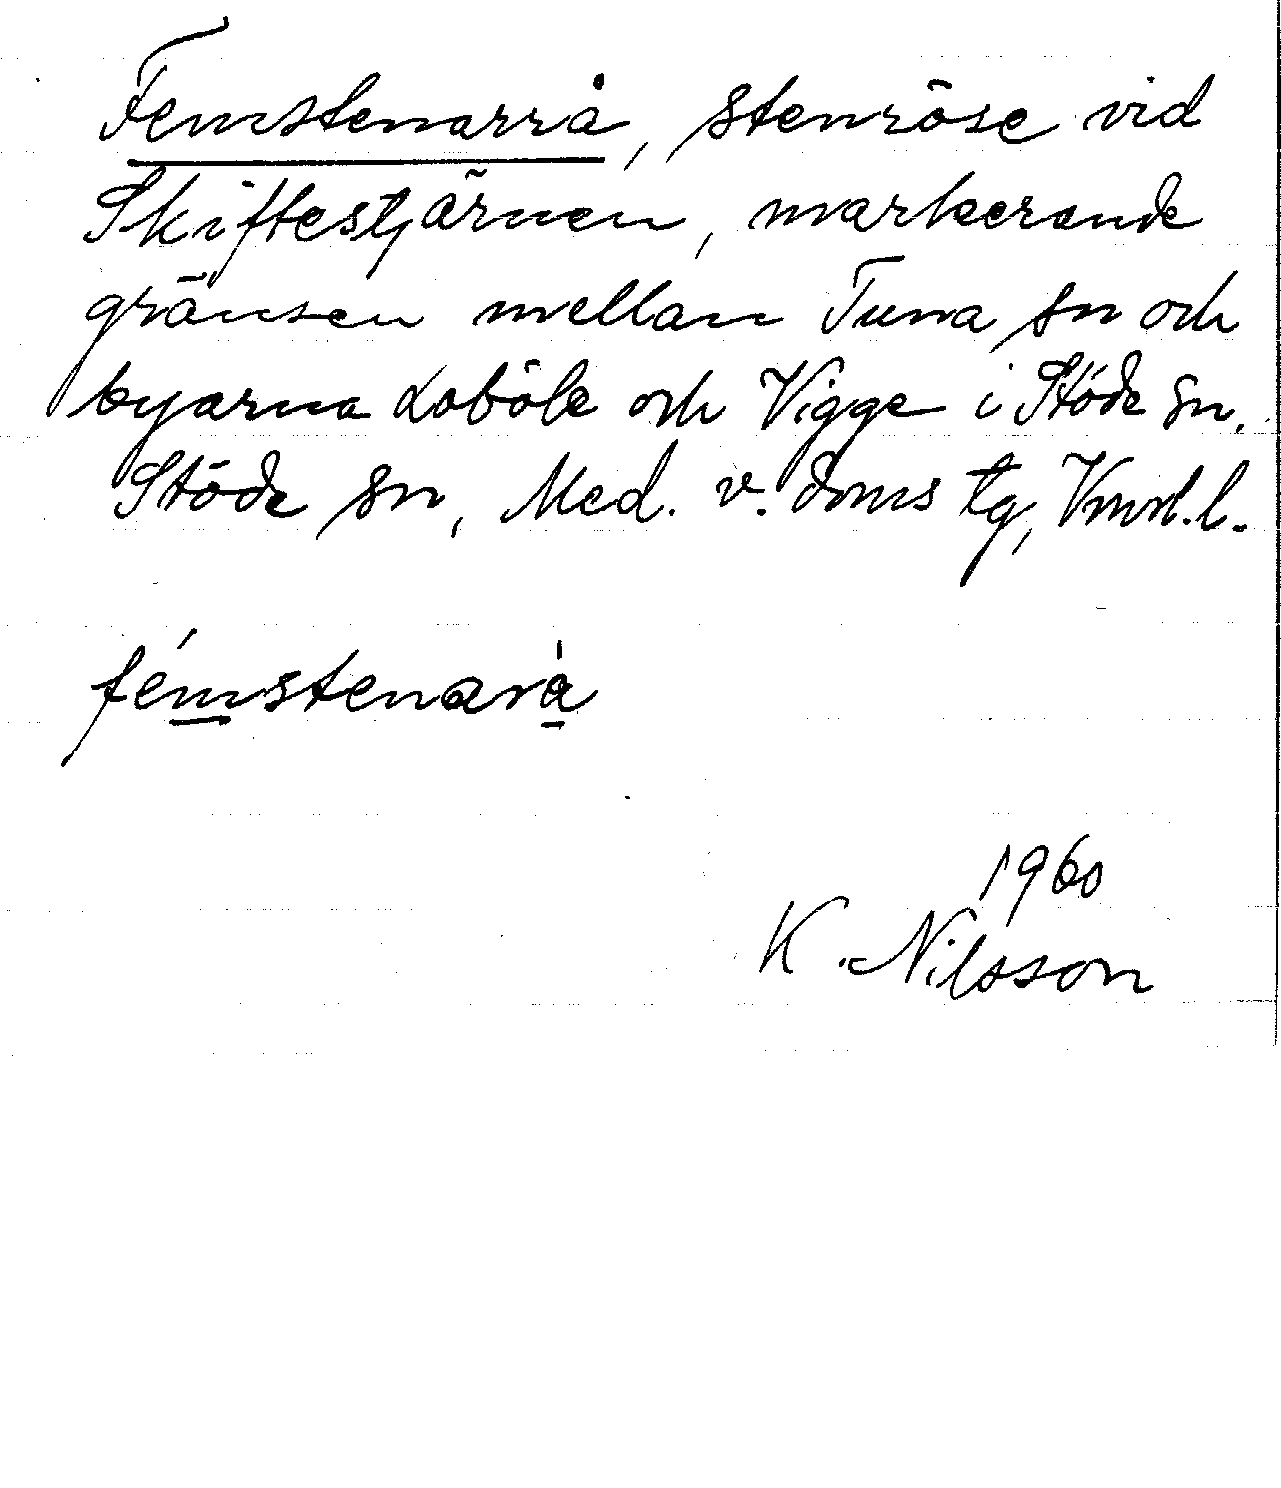 Femstenarrå, stenröse vid
Skiftestjärnen, markerande
gränsen mellan Tuna sn och
byarna Loböle och Vigge i Stöde sn.
Stöde sn, Med. v. doms tg, Vmrl.l.
fémstenarå̀
1960
K. Nilsson